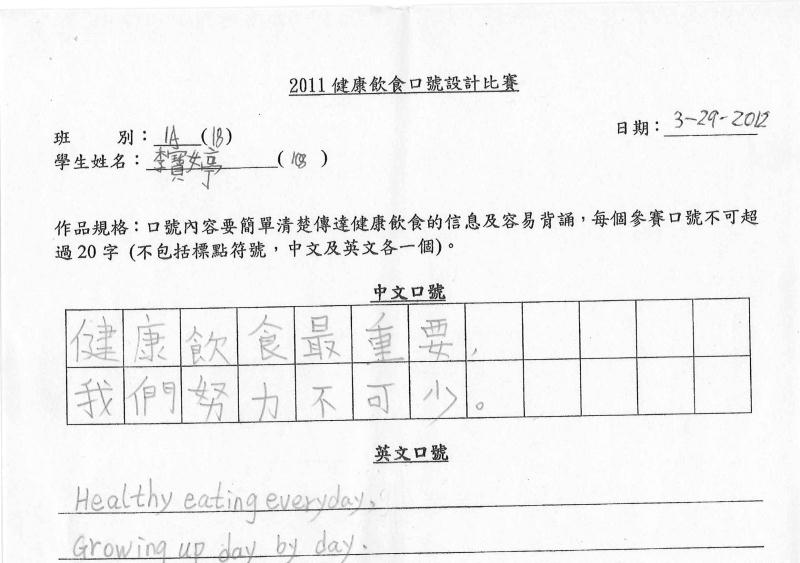 2011 健康飲食口號設計比賽
班 別：1A (18)
日期：3-29-2012
學生姓名：李寶婷 (18)
作品規格：口號內容要簡單清楚傳達健康飲食的信息及容易背誦，每個參賽口號不可超
過 20 字 (不包括標點符號，中文及英文各一個)。
中文口號
健康飲食最重要，
我們努力不可少。
英文口號
Healthy eating everyday,
Growing up day by day.